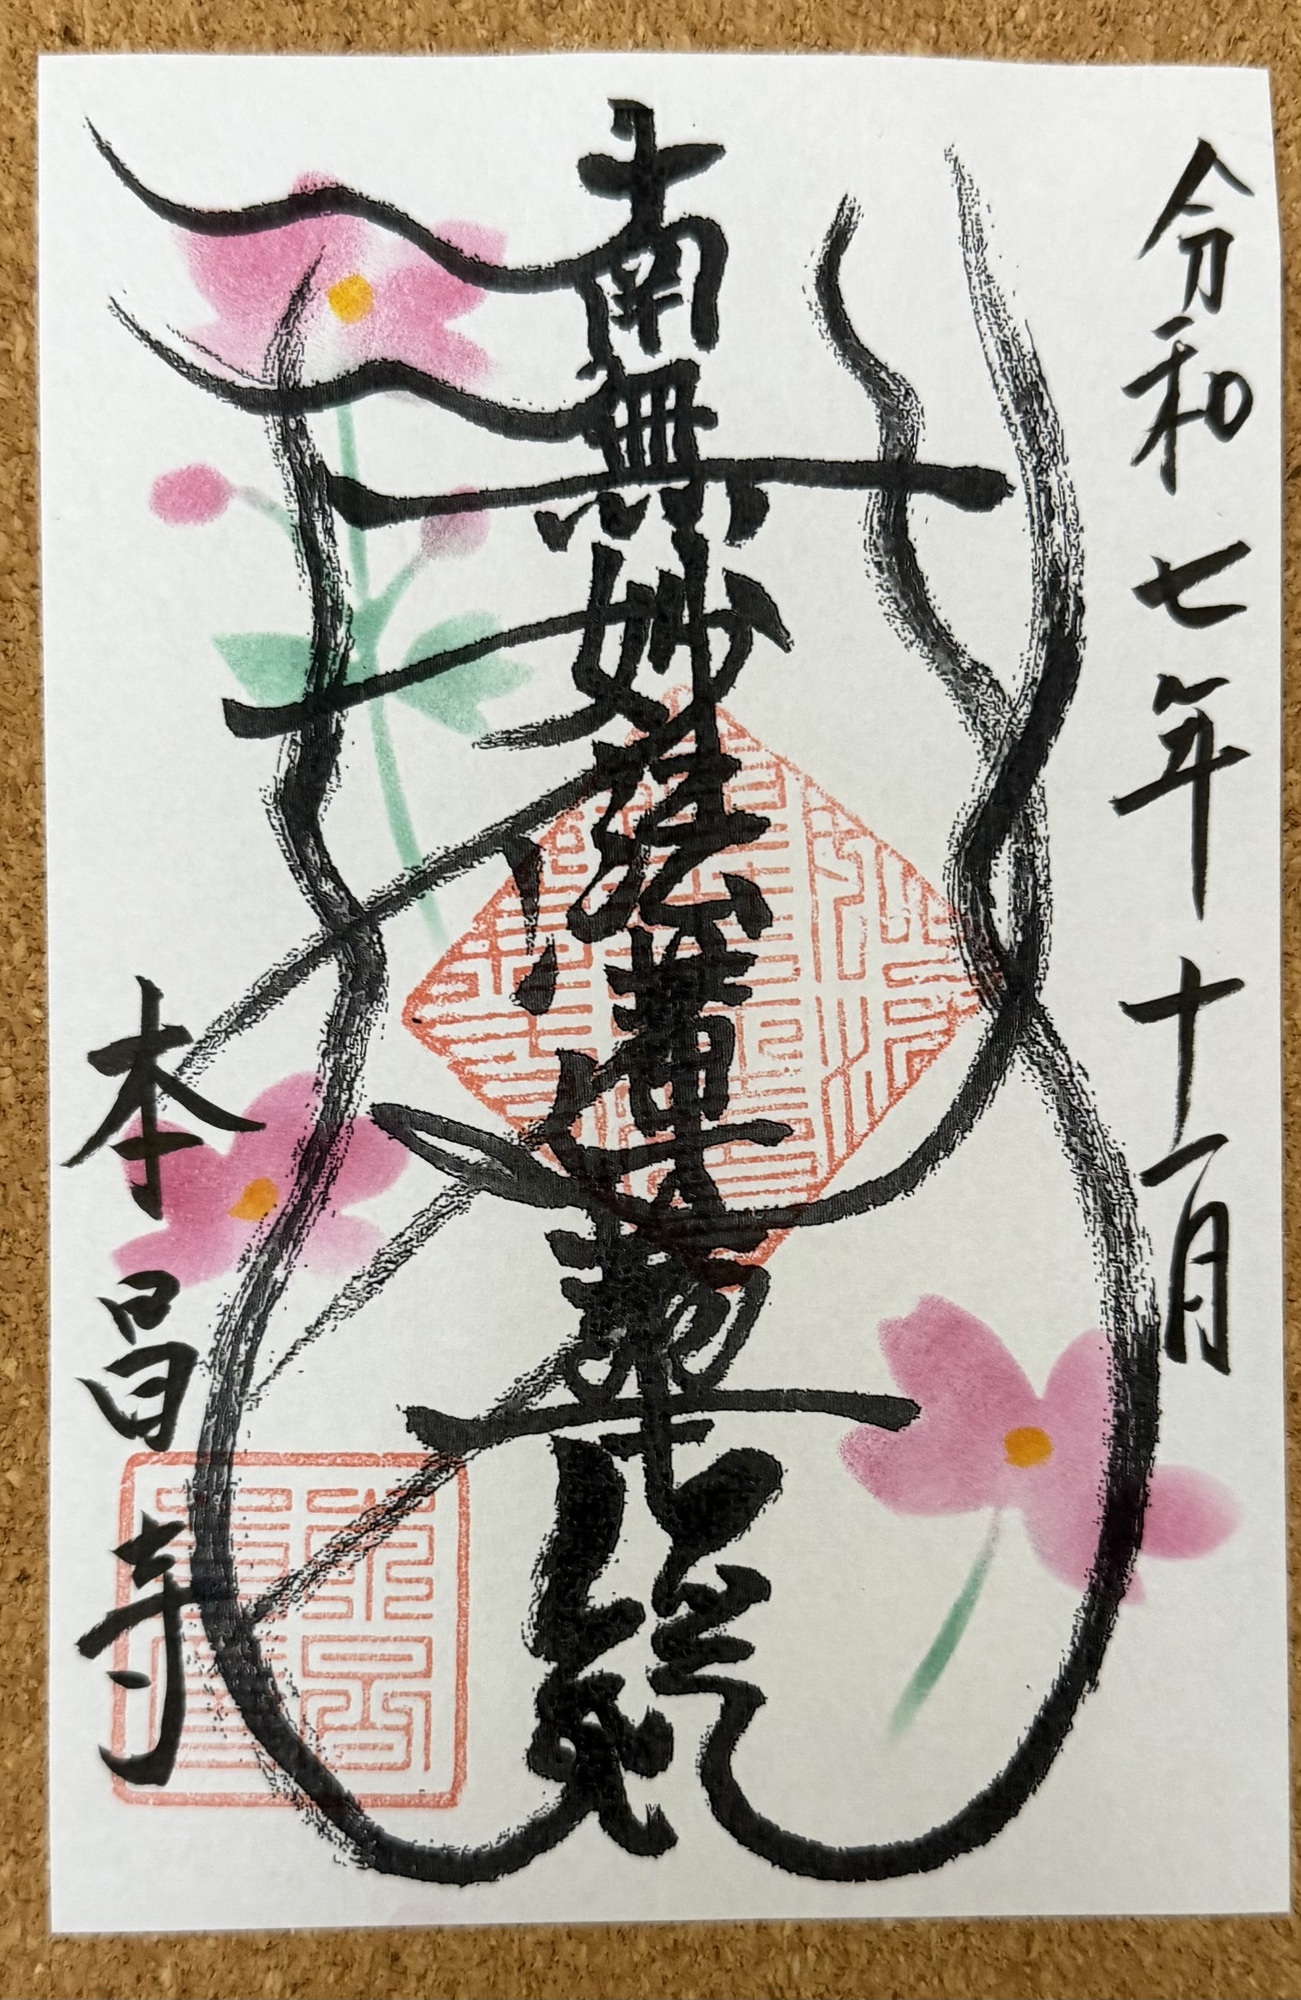 令和七年十一月
南無妙法蓮華経
本昌寺